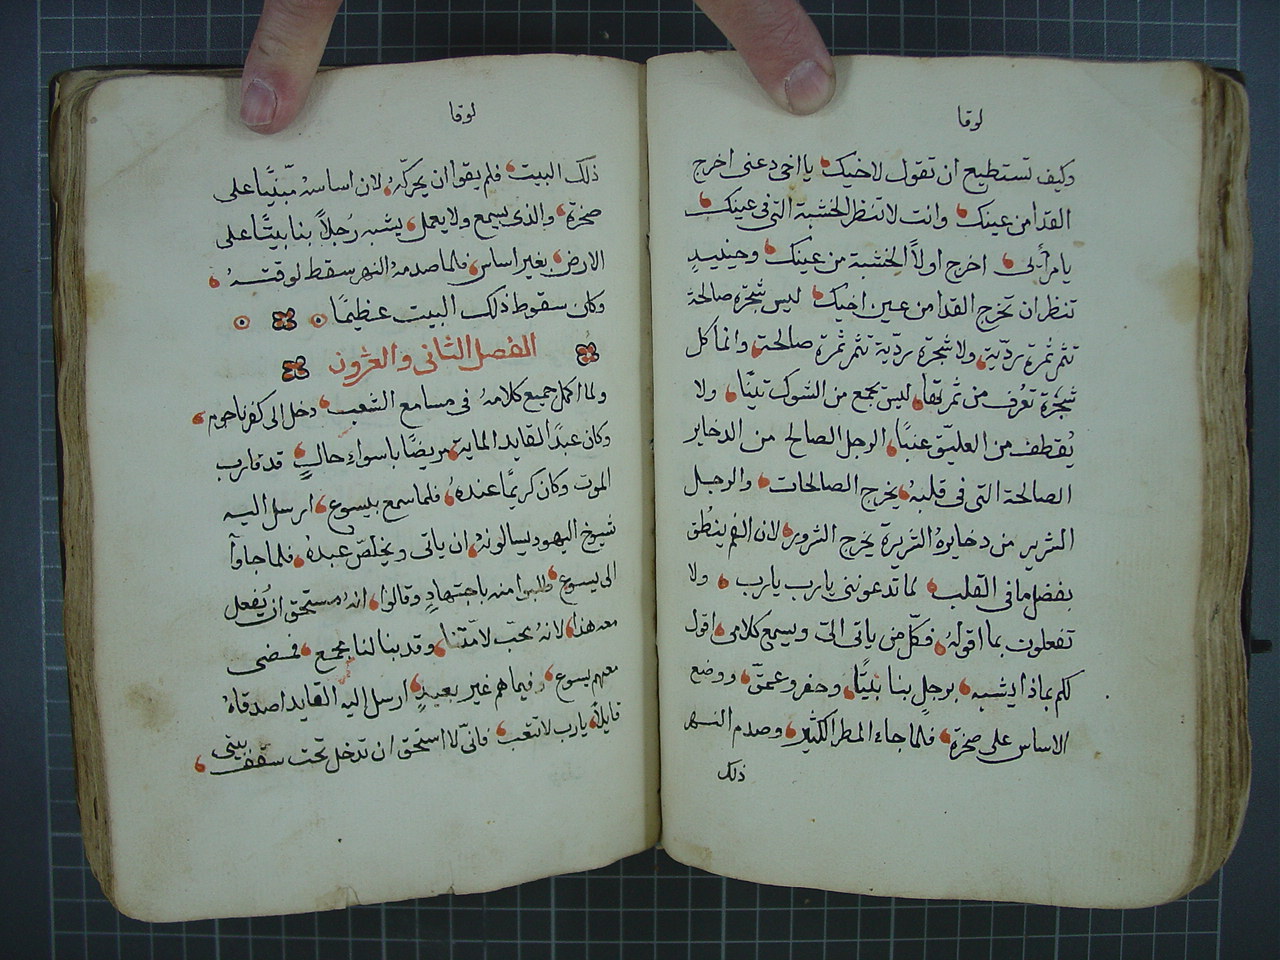 لوقا
وكيف تستطيع ان تقول لاخيك يا اخى دعنى اخرج
القدا من عينك وانت لا تنظر الخشبة التى فى عينك
يا مرأيى اخرج اولاً الخشبة من عينك وحينيدٍ
تنظر ان تخرج القدا من عين اخيك ليس شجرة صالحة
تثمر ثمرة رديّة ولا شجرة رديّة تثمر ثمرة صالحة وانما كل
شجرة تعرف من ثمرتها ليس يجمع من الشوك تينًا ولا
يُقتطف من العليّق عنبًا الرجل الصالح من الدخاير
الصالحة التى فى قلبهُ يخرج الصالحات والرجل
الشرير من دخايرهُ الشريرة يخرج الشرور لان الفم ينطق
بفضل ما فى القلب لما تدعوننى يا رب يا رب ولا
تفعلون بما اقولهُ فكلّ من ياتى الىّ ويسمع كلامى اقول
لكم بماذا يشبه برجلٍ بنا بيتًا وحفر وعمقّ ووضع
الاساس على صخرة فلما جاء المطر الكثير وصدم النهر
ذلك
لوقا
ذلك البيت فلم يقوا ان يحركّهُ لان اساسهُ مبنّيًا على
صخرة والذى يسمع ولا يعمل يشبه رُجلاً بنا بيتًا على
الارض بغير اساس فلما صدمهُ النهر سقط لوقتهُ
وكان سقوط ذلك البيت عظيمًا
الفصل الثانى والعشرون
ولما اكمل جميع كلامهُ فى مسامع الشعب دخل الى كفرناحوم
وكان عبدًا لقايد الماية مريضًا باسواء حالٍ قد قارب
الموت وكان كريمًا عندهُ فلما سمع بيسوع ارسل اليه
شيوخ اليهود يسالونهُ ان ياتى ويخلصّ عبدهُ فلما جاوآ
الى يسوع طلبوا منه باجتهادٍ وقالوا انهُ مستحق ان يُفعل
معه هذا لانهُ يحبّ لامّتنا وقد بنا لنا مجمع فمضى
معهم يسوع وفيما هم غير بعيدٍ ارسل اليه القايد اصدقاهُ
قايلاً يا رب لا تتعب فانىّ لا استحق ان تدخل تحت سقف بيتى